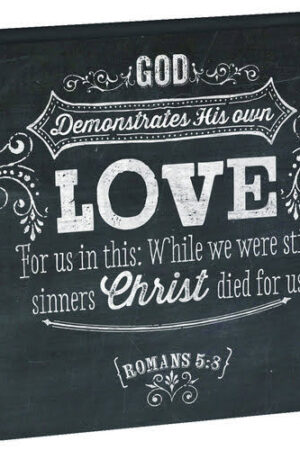 GOD
Demonstrates His own
LOVE
For us in this: While we were sti
sinners Christ died for us
[ROMANS 5:8]